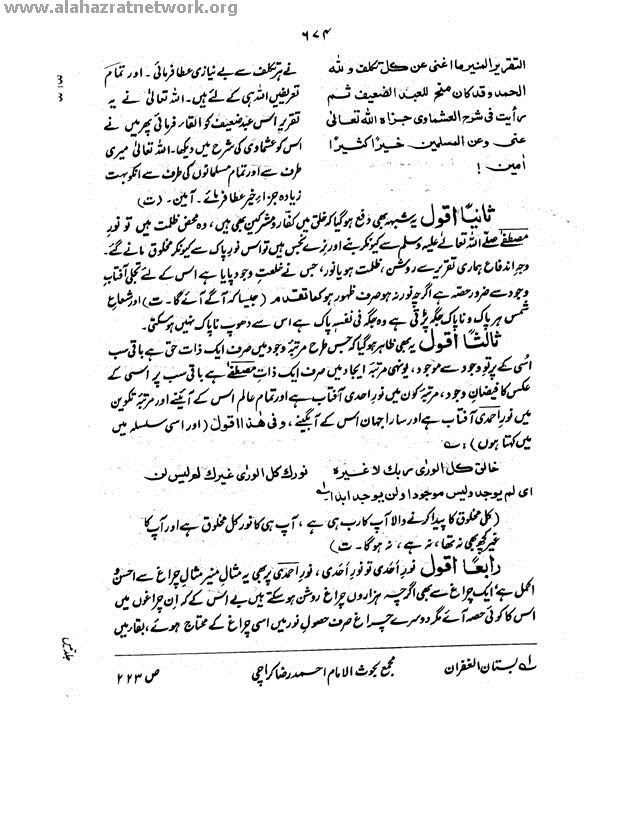 www.alahazratnetwork.org
٦٧٤
التقرير المنير ما اغنى عن كل تكلف و لله
الحمد وقد كان منح للعبد الضعيف ثم
رأيت فى شرح العشماوى جزاه الله تعالى
عنى وعن المسلمين خيرًا كثيرًا
أمين !
نے ہر تکلف سے بے نیازی عطا فرمائی ۔ اور تمام
تعریفیں اللہ ہی کے لئے ہیں۔ اللہ تعالیٰ نے یہ
تقریر اس عبد ضعیف کو القار فرمائی پھر میں نے
اس کو عشماوی کی شرح میں دیکھا۔ اللہ تعالیٰ میری
طرف سے اور تمام مسلمانوں کی طرف سے انکو بہت
زیادہ جزاءِ خیر عطا فرمائے۔ آمین ۔ (ت)
3
3
ثانیًا اقول یہ شبہہ بھی دفع ہوگیا کہ خلق میں کفار و مشرکین بھی ہیں، وہ محض ظلمت ہیں تو نورِ
مصطفےٰ صلی اللہ تعالےٰ علیہ وسلم سے کیونکر بنے اور نرے نجس ہیں تو اس نور پاک سے کیونکر مخلوق مانے گئے۔
وجہ اندفاع ہماری تقریر سے روشن، ظلمت ہو یا نور، جس نے خلعتِ وجود پایا ہے اس کے لئے تجلی آفتابِ
وجود سے ضرور حصہ ہے اگرچہ نور نہ ہو صرف ظہور ہو کما تقدم (جیسا کہ آگے آئے گا۔ ت) اور شعاعِ
شمس ہر پاک و ناپاک جگہ پڑتی ہے وہ جگہ فی نفسہٖ پاک ہے اس سے دھوپ ناپاک نہیں ہوسکتی۔
ثالثًا اقول یہ بھی ظاہر ہوگیا کہ جس طرح مرتبۂ وجود میں صرف ایک ذات حق ہے باقی سب
اُسی کے پرتوِ وجود سے موجود، یونہی مرتبۂ ایجاد میں صرف ایک ذات مصطفےٰ ہے باقی سب پر اسی کے
عکس کا فیضانِ وجود، مرتبۂ کون میں نورِ احدی آفتاب ہے اور تمام عالم اس کے آئینے اور مرتبۂ تکوین
میں نورِ احمدی آفتاب ہے اور سارا جہان اس کے آبگینے، وفی ھذا اقول (اور اسی سلسلہ میں
میں کہتا ہوں) : ؎
خالق كل الورٰى ربك لا غيره نورك كل الورٰى غيرك لم ليس لن
اى لم يوجد وليس موجودا ولن يوجد ابدا ؎۱
(کل مخلوق کا پیدا کرنے والا آپ کا رب ہی ہے ، آپ ہی کا نور کل مخلوق ہے اور آپ کا
غیر کچھ بھی نہ تھا، نہ ہے ، نہ ہوگا۔ ت)
رابعًا اقول نورِ اَحَدی تو نورِ اَحَدی، نورِ احمدی پر بھی یہ مثال منیر مثال چراغ سے احسن و
اکمل ہے، ایک چراغ سے بھی اگرچہ ہزاروں چراغ روشن ہوسکتے ہیں بے اس کے کہ ان چراغوں میں
اس کا کوئی حصہ آئے مگر دوسرے چراغ صرف حصولِ نور میں اسی چراغ کے محتاج ہوئے، بقا میں
؎۱ بستان الغفران مجمع بحوث الامام احمد رضا کراچی ص ۲۲۳